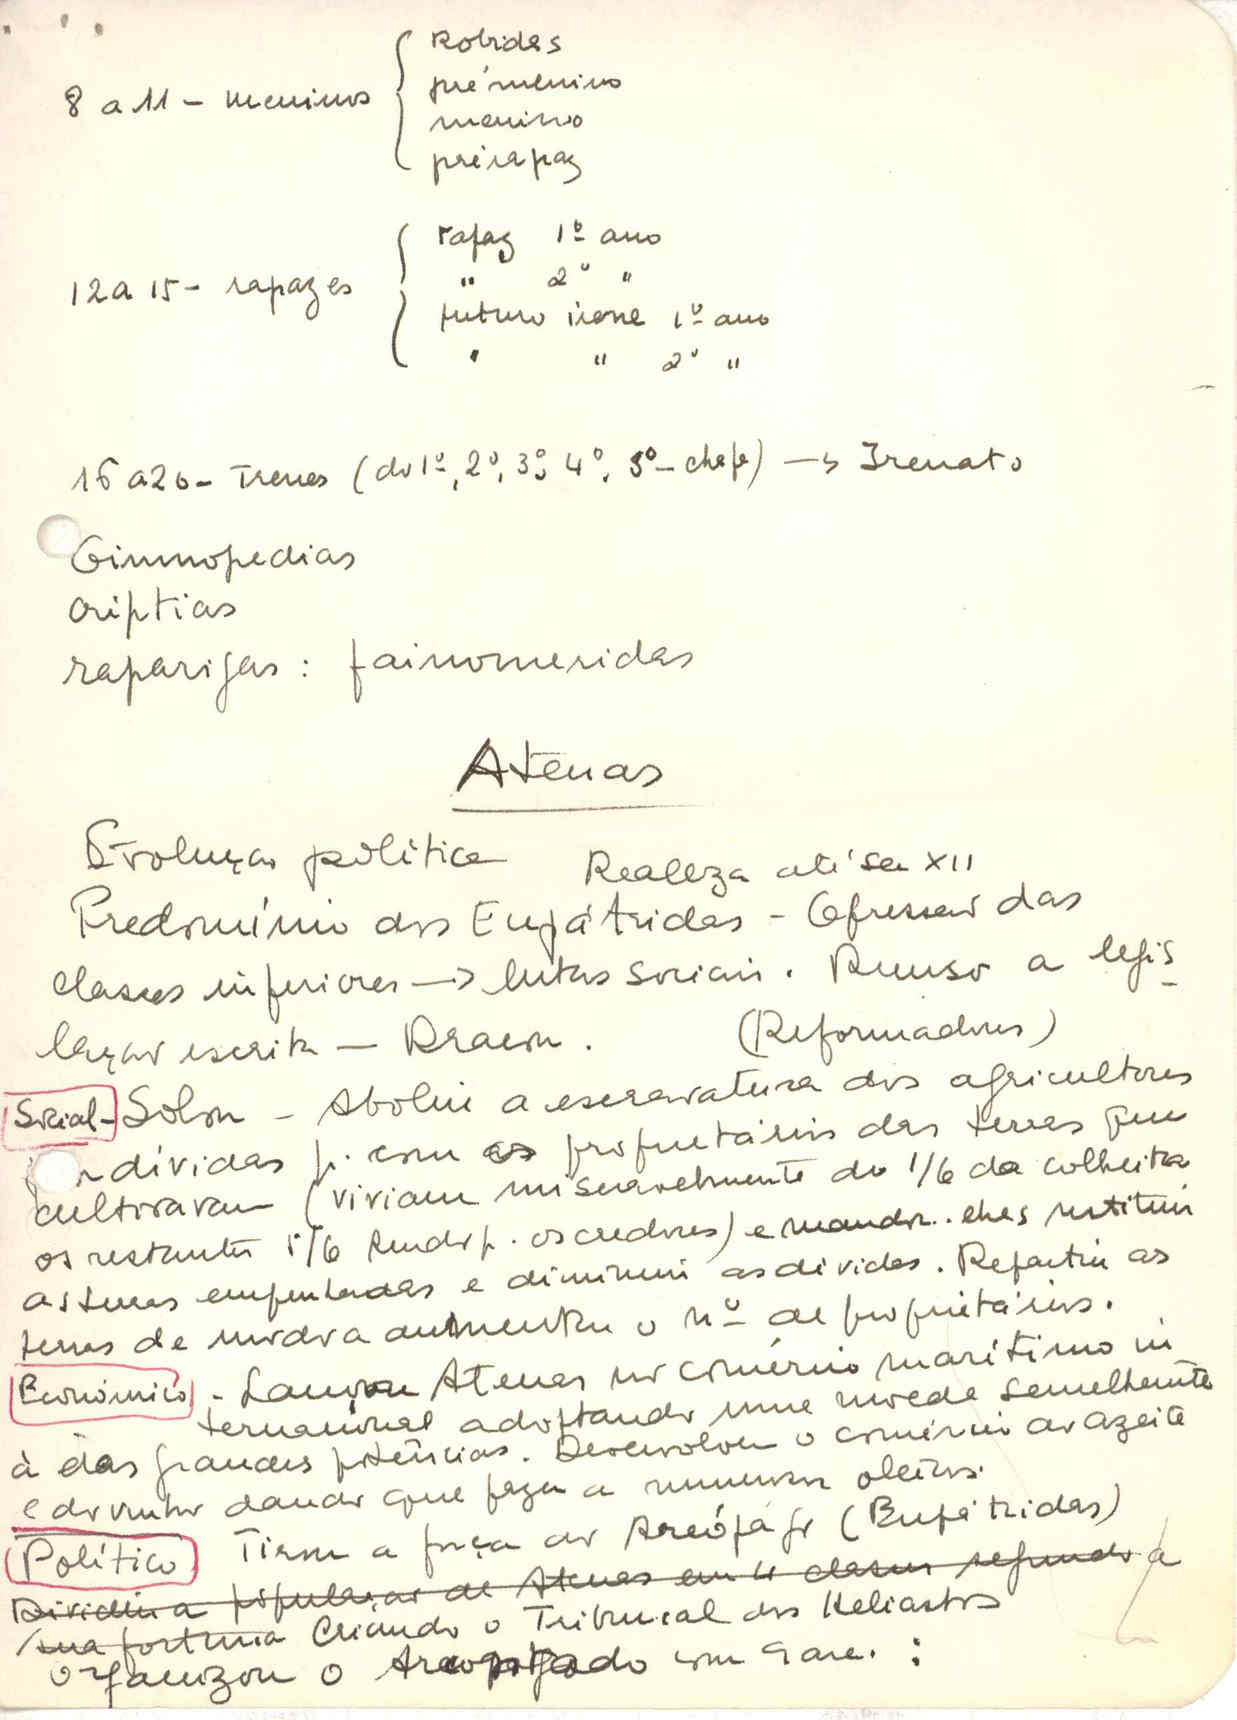 8 a 11 - meninos
Robidas
prémenino
menino
prérapaz
12 a 15 - rapazes
rapaz 1º ano
" 2º "
futuro irene 1º ano
" " 2º "
16 a 20 - Irenes (do 1º, 2º, 3º, 4º, 5º - chefe) → Irenato
Gimnopedias
criptias
raparigas: fainomeridas
Atenas
Evolução política
Realeza até sec XII
Predomínio dos Eupátridas - Opressão das
classes inferiores → lutas sociais. Recurso a legis
lação escrita — Dracon. (Reformadores)
Social - Solon - Aboliu a escravatura dos agricultores
dívidas p. com os proprietários das terras que
cultivavam (viviam miseravelmente do 1/6 da colheita
os restantes 5/6 p. os credores) e mandou-lhes restituir
as terras empenhadas e diminuiu as dívidas. Repartiu as
terras de modo a aumentar o nº de proprietários.
Económico - Lançou Atenas no comércio marítimo in
ternacional adoptando uma moeda semelhante
à das grandes potências. Desenvolveu o comércio do azeite
e do vinho dando que fazer a numerosos oleiros.
Político Tirou a força ao Areópago (Eupátridas)
Dividiu a população de Atenas em 4 classes segundo a
sua fortuna Criando o Tribunal dos Heliastas
Organizou o com 9 arc. :